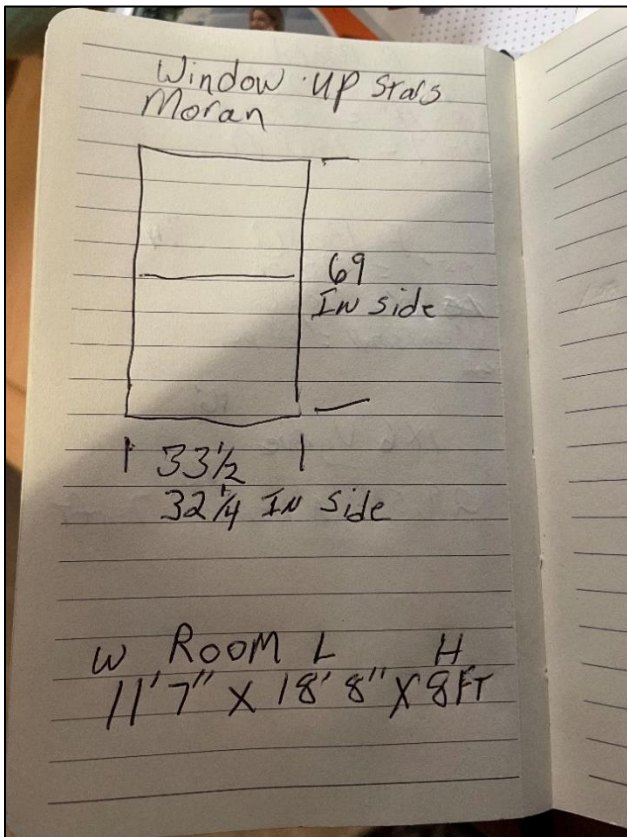 Window up stars
Moran
69
In side
33 1/2
32 1/4 In side
W Room L H
11'7" X 18'8" X 8 FT